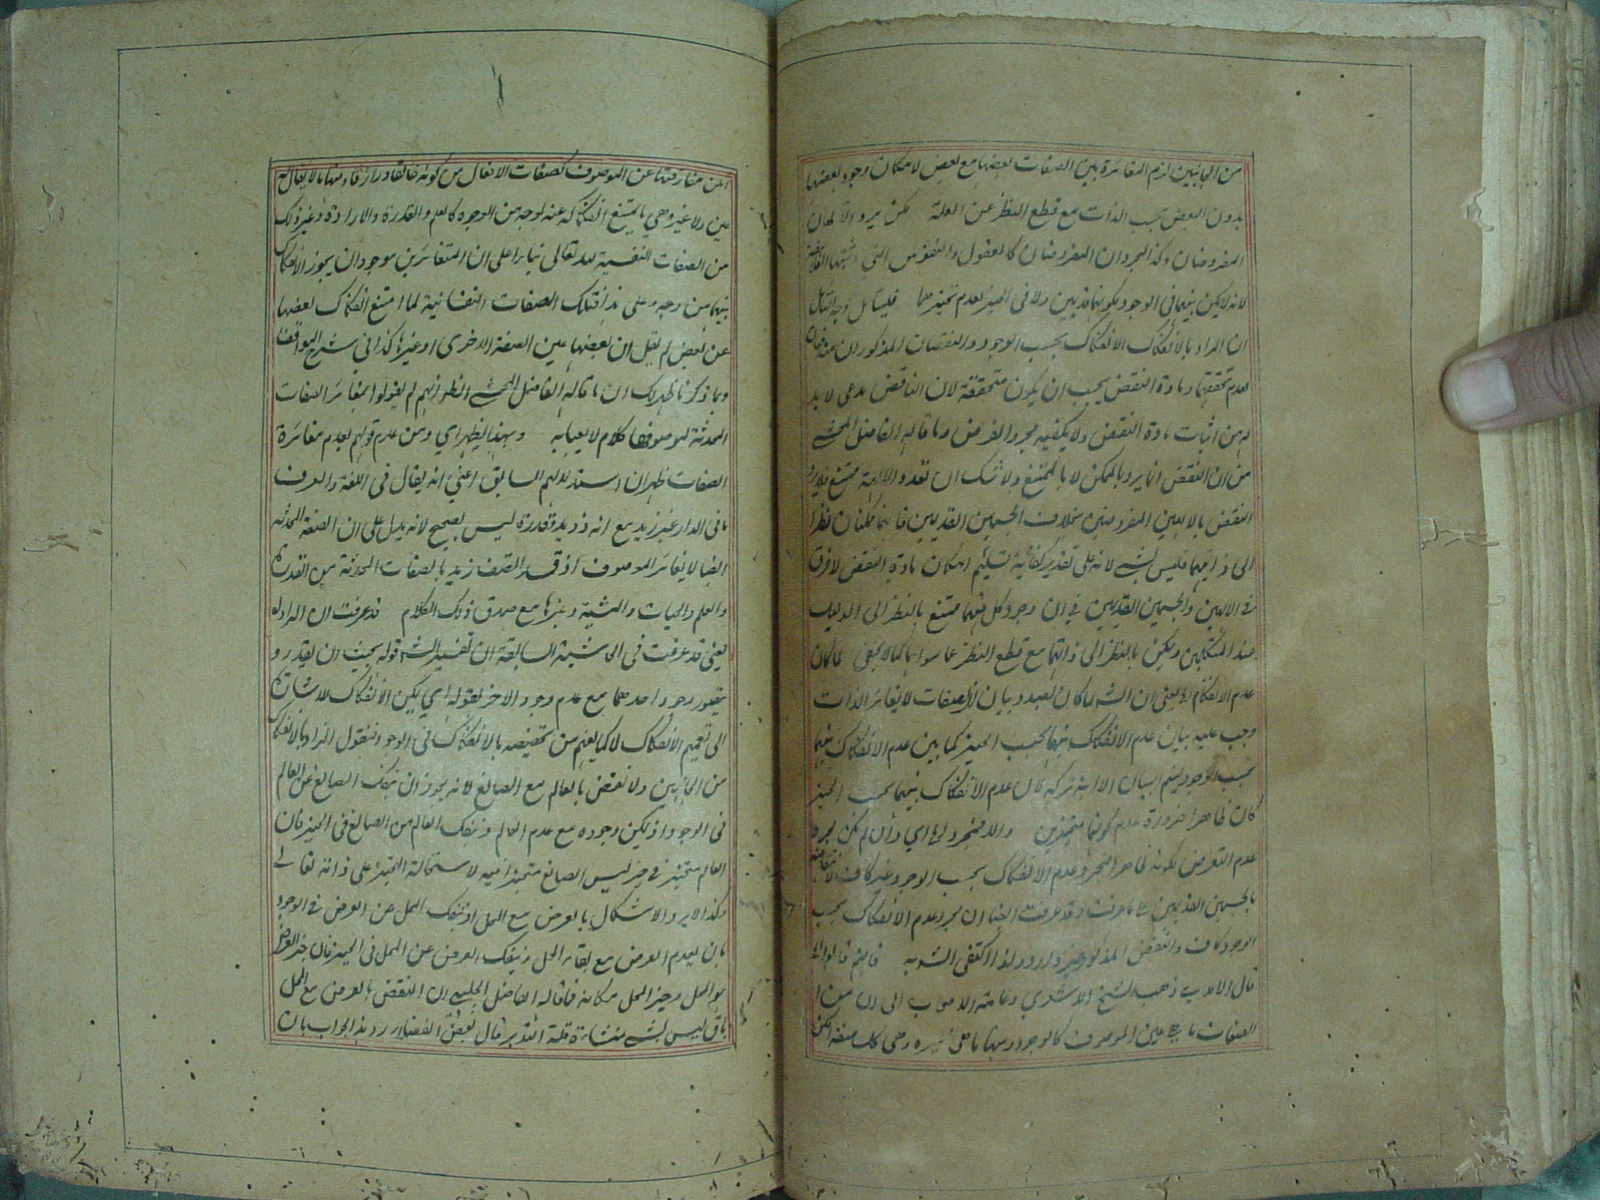 من الجانبين لزم المغائرة بين الصفات بعضها مع بعض لامكان وجود بعضها
بدون البعض بحسب الذات مع قطع النظر عن العلة لكن يرد الالهان
المفروضان وكذا المجردان المفروضان كالعقول والنفوس التي اثبتها الفلاسفة
لانه لا يمكن بينهما في الوجود لكونهما قديمين ولا في الحيز لعدم تحيزهما فليتأمل
ان المراد بالانفكاك الانفكاك بحسب الوجود والنقضان المذكوران مندفعان
لعدم تحققهما ومادة النقض يجب ان يكون متحققة لان الناقض مدعى لا بد
له من اثبات مادة النقض ولا يكفيه مجرد الفرض وما قاله الفاضل المحشي
من ان النقض انما يرد بالممكن لا بالممتنع ولا شك ان تعدد الالهة ممتنع فلا يرد
النقض بالالهين المفروضين بخلاف الجسمين القديمين فانهما ممكنان نظرا
الى ذاتيهما فليس بشيء لانه على تقدير كفاية تسليم امكان مادة النقض لا فرق
في الالهين والجسمين القديمين في ان وجود كل منهما ممتنع بالنظر الى الدليل
عند المتكلمين وممكن بالنظر الى ذاتهما مع قطع النظر عما سواهما كما لا يخفى
عدم الانفكاك يعني ان الش لما كان بصدد بيان ان الصفات لا يغائر الذات
وجب عليه بيان عدم الانفكاك بينهما بحسب الحيز كما بين عدم الانفكاك بينهما
بحسب الوجود ليتم البيان الا انه تركه لان عدم الانفكاك بينهما بحسب الحيز
كان ظاهرا ضرورة عدم كونهما متحيزين والا فمجرد اي وان لم يكن
عدم التعرض لكونه ظاهرا فمجرد عدم الانفكاك بحسب الوجود غير كاف
بالجسمين القديمين ما عرفت وقد عرفت ايضا ان مجرد عدم الانفكاك بحسب
الوجود كاف والنقض المذكور غير وارد ولذا اكتفى الش به فانهم قالوا
قال الامدي ذهب الشيخ الاشعري وعامة الاصحاب الى ان من
الصفات ما هي عين الموصوف كالوجود ومنها ما هي غيره وهي كل صفة امكن
امكن مفارقتها عن الموصوف كصفات الافعال من كونه خالقا ورازقا ومنها ما لا يقال
عين ولا غير وهي ما يمتنع انفكاكه عنه بوجه من الوجوه كالعلم والقدرة والارادة وغير ذلك
من الصفات النفسية لله تعالى بناء على ان المتغائرين موجودان يجوز الانفكاك
بينهما من وجه وعلى هذا فتلك الصفات النفسانية لما امتنع انفكاك بعضها
عن بعض لم يقل ان بعضها عين الصفة الاخرى او غيرها كذا في شرح المواقف
وبما ذكرنا ظهر لك ان ما قاله الفاضل المحشي انهم لم يقولوا بمغائرة الصفات
المحدثة لموصوفها كلام لا يعبأ به وبهذا يظهر اي ومن عدم قولهم بعدم مغائرة
الصفات ظهر ان استدلالهم السابق اعني انه يقال في اللغة والعرف
ما في الدار غير زيد مع انه ذو يد وقدرة ليس بصحيح لانه يدل على ان الصفة المحدثة
ايضا لا يغائر الموصوف اذ قد اتصف زيد بالصفات المحدثة من القدرة
والعلم والحيات والمشية وغيرها مع صدق ذلك الكلام قد عرفت ان المراد
يعني قد عرفت في الحاشية السابقة ان تفسير الش قوله بحيث ان يقدر و
يتصور وجود احدهما مع عدم وجود الاخر بقوله اي يمكن الانفكاك للاشارة
الى تعميم الانفكاك لا كما يفهم من تخصيصه بالانفكاك في الوجود فنقول المراد بالانفكاك
من الجانبين ولا نقض بالعالم مع الصانع لانه يجوز ان ينفك الصانع عن العالم
في الوجود اذ يمكن وجوده مع عدم العالم وينفك العالم من الصانع في الحيز فان
العالم متحيز في حيز ليس الصانع متحيزا فيه لاستحالة التحيز على ذاته تعالى
وكذا لا يرد الاشكال بالعرض مع المحل اذ ينفك المحل عن العرض في الوجود
بان يعدم العرض مع بقاء المحل وينفك العرض عن المحل في الحيز فان حيز العرض
هو المحل وحيز المحل مكانه فما قاله الفاضل الجلبي ان النقض بالعرض مع المحل
باق ليس بشيء منشاؤه قلة التدبر قال بعض الفضلاء ويرد بهذا الجواب بان